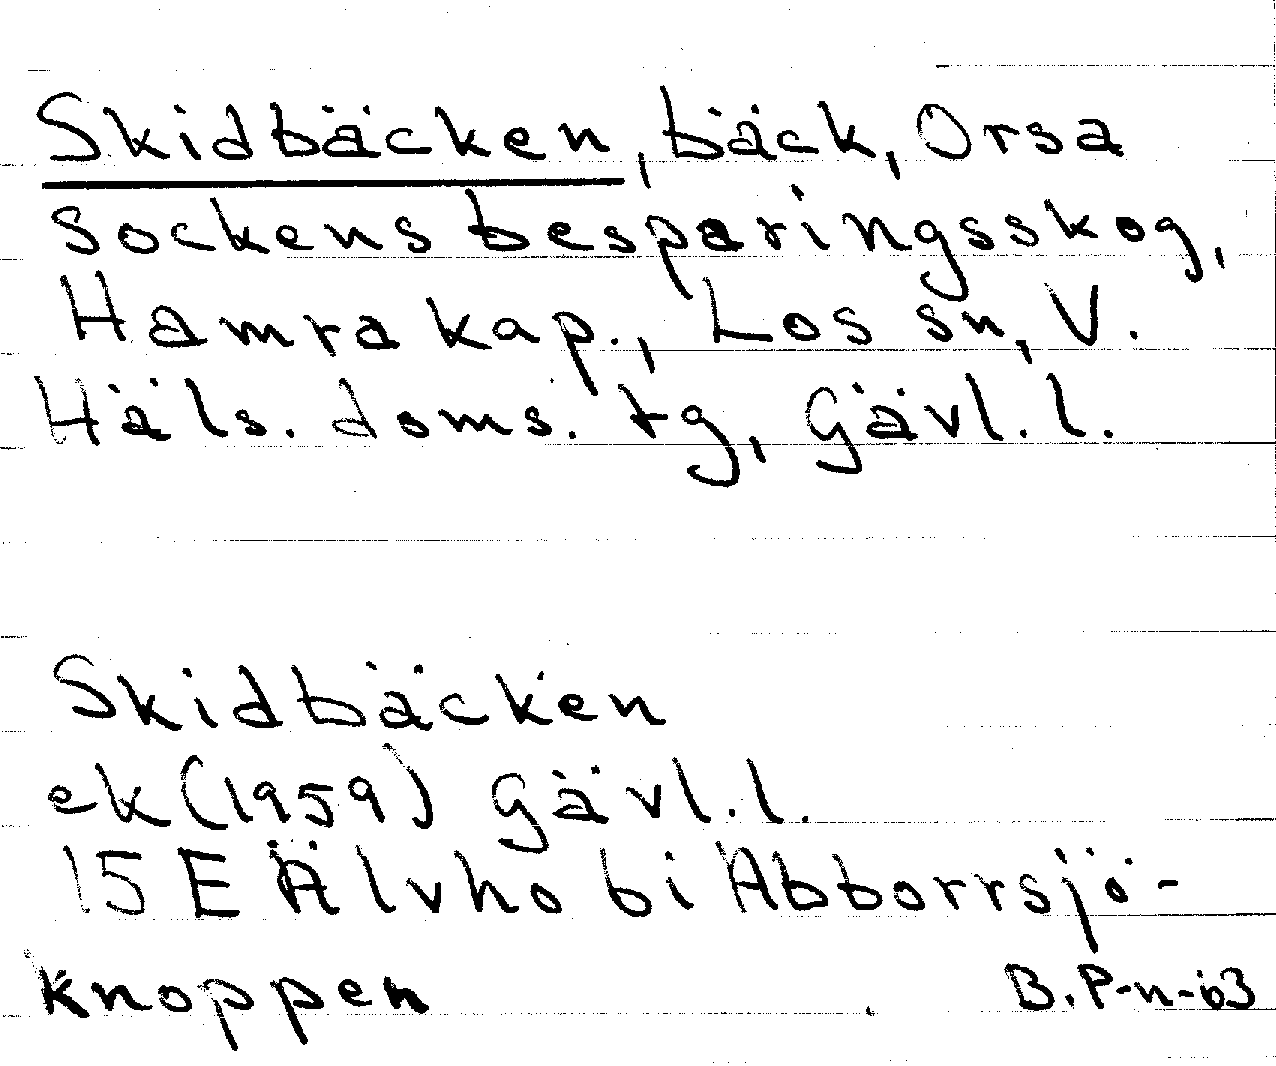 Skidbäcken, bäck, Orsa
sockens besparingsskog,
Hamra kap., Los sn, V.
Häls. doms. tg, Gävl. l.
Skidbäcken
ek (1959) Gävl. l.
15 E Älvho bi Abborrsjö-
knoppen
B. P-n -63